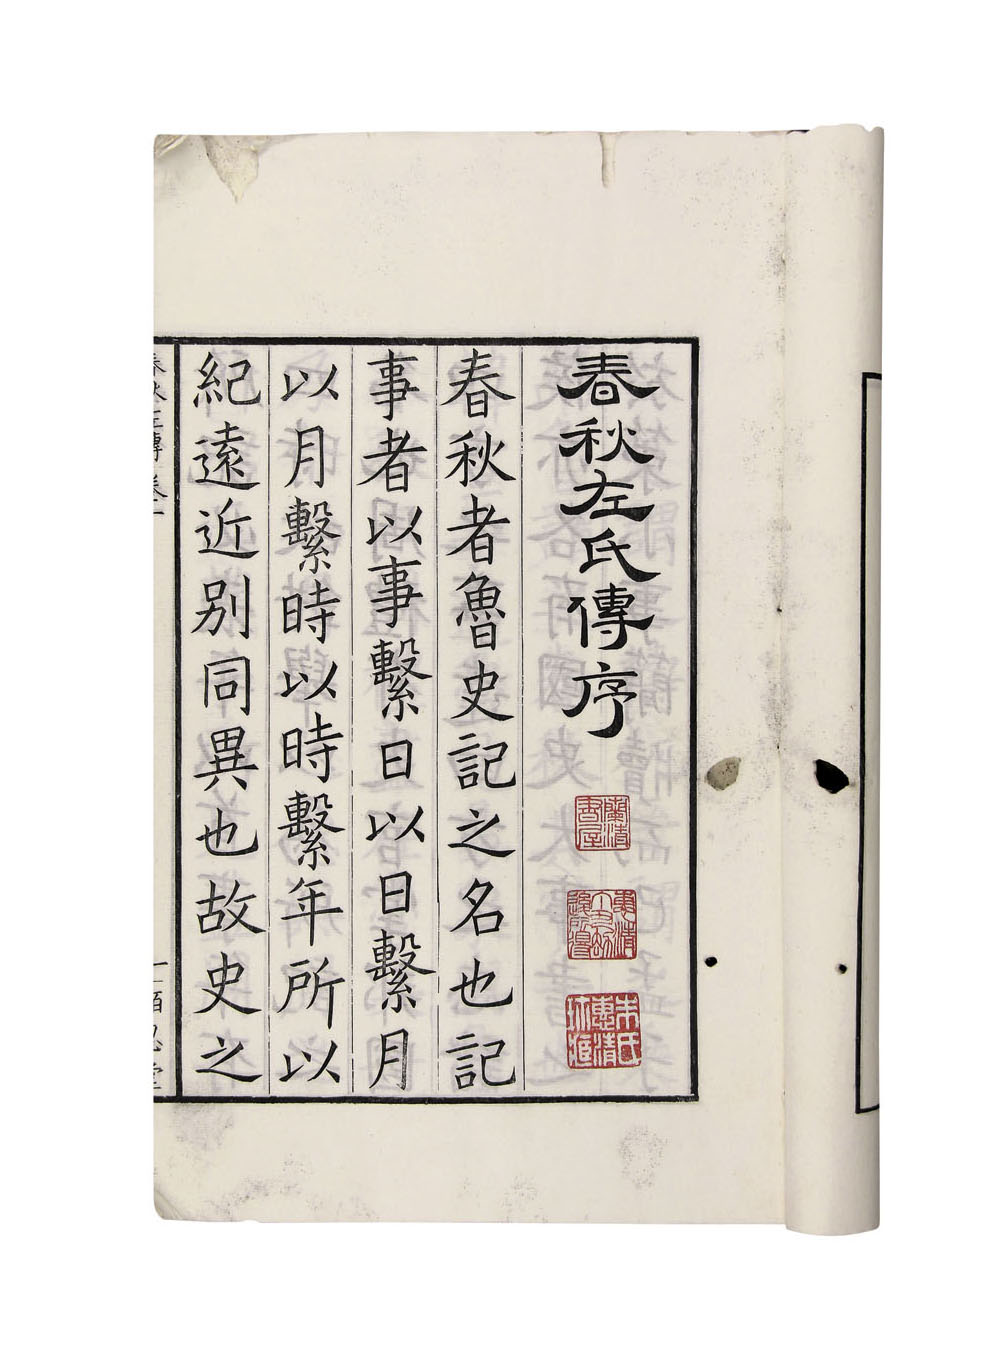 春秋左氏傳序
春秋者魯史記之名也記
事者以事繫日以日繫月
以月繫時以時繫年所以
紀遠近別同異也故史之